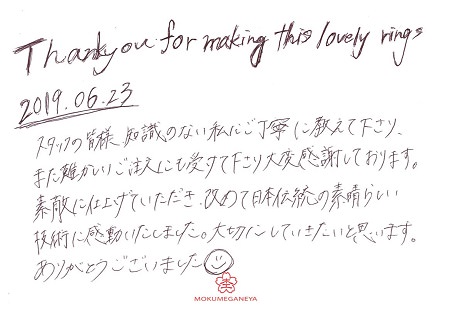 Thank you for making this lovely rings
2019.06.23
スタッフの皆様、知識のない私たにご丁寧に教えて下さり、
また難かしいご注文にも受けて下さり大変感謝しております。
素敵に仕上げていただき、改めて日本伝統の素晴らしい
技術に感動いたしました。大切にしていきたいと思います。
ありがとうございました
MOKUMEGANEYA